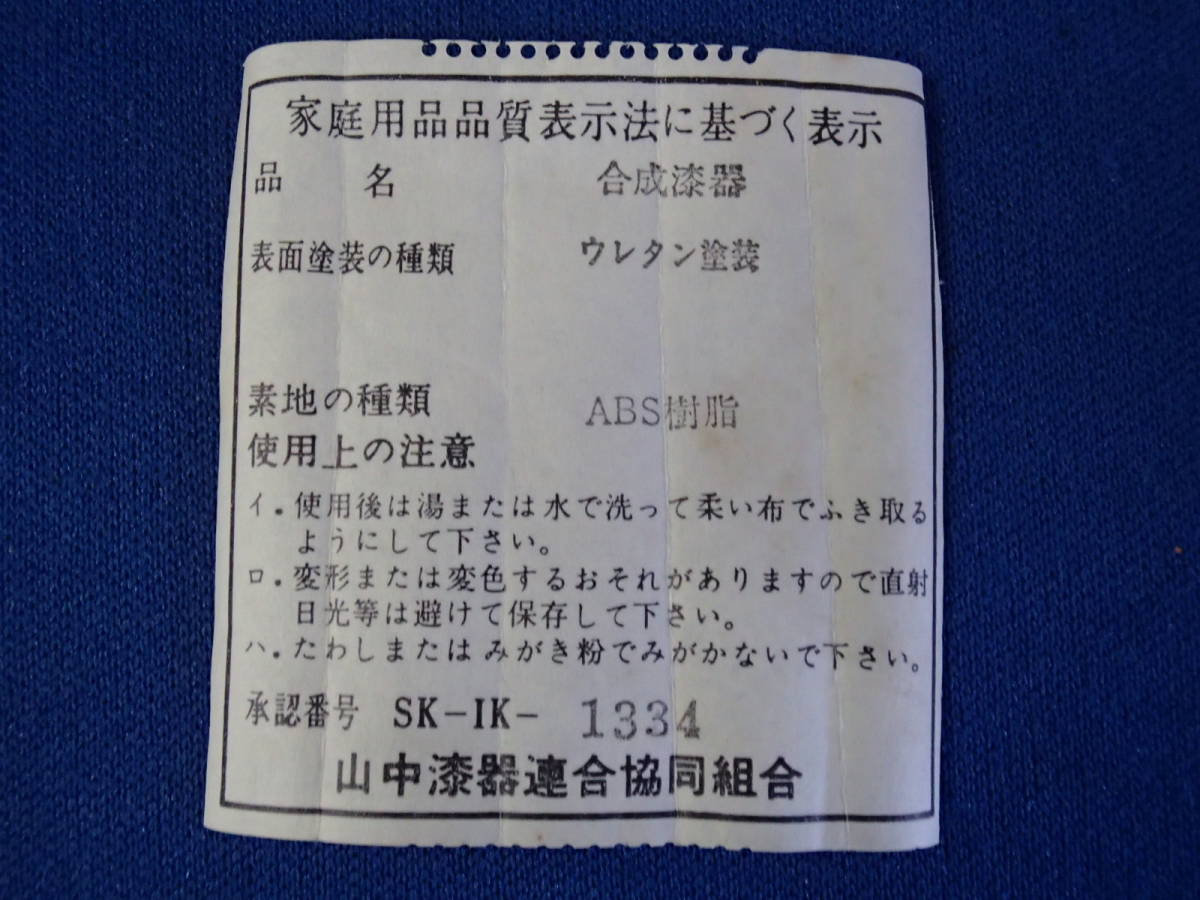 家庭用品品質表示法に基づく表示
品名 合成漆器
表面塗装の種類 ウレタン塗装
素地の種類 ABS樹脂
使用上の注意
イ.使用後は湯または水で洗って柔い布でふき取る
ようにして下さい。
ロ.変形または変色するおそれがありますので直射
日光等は避けて保存して下さい。
ハ.たわしまたはみがき粉でみがかないで下さい。
承認番号 SK-IK-1334
山中漆器連合協同組合